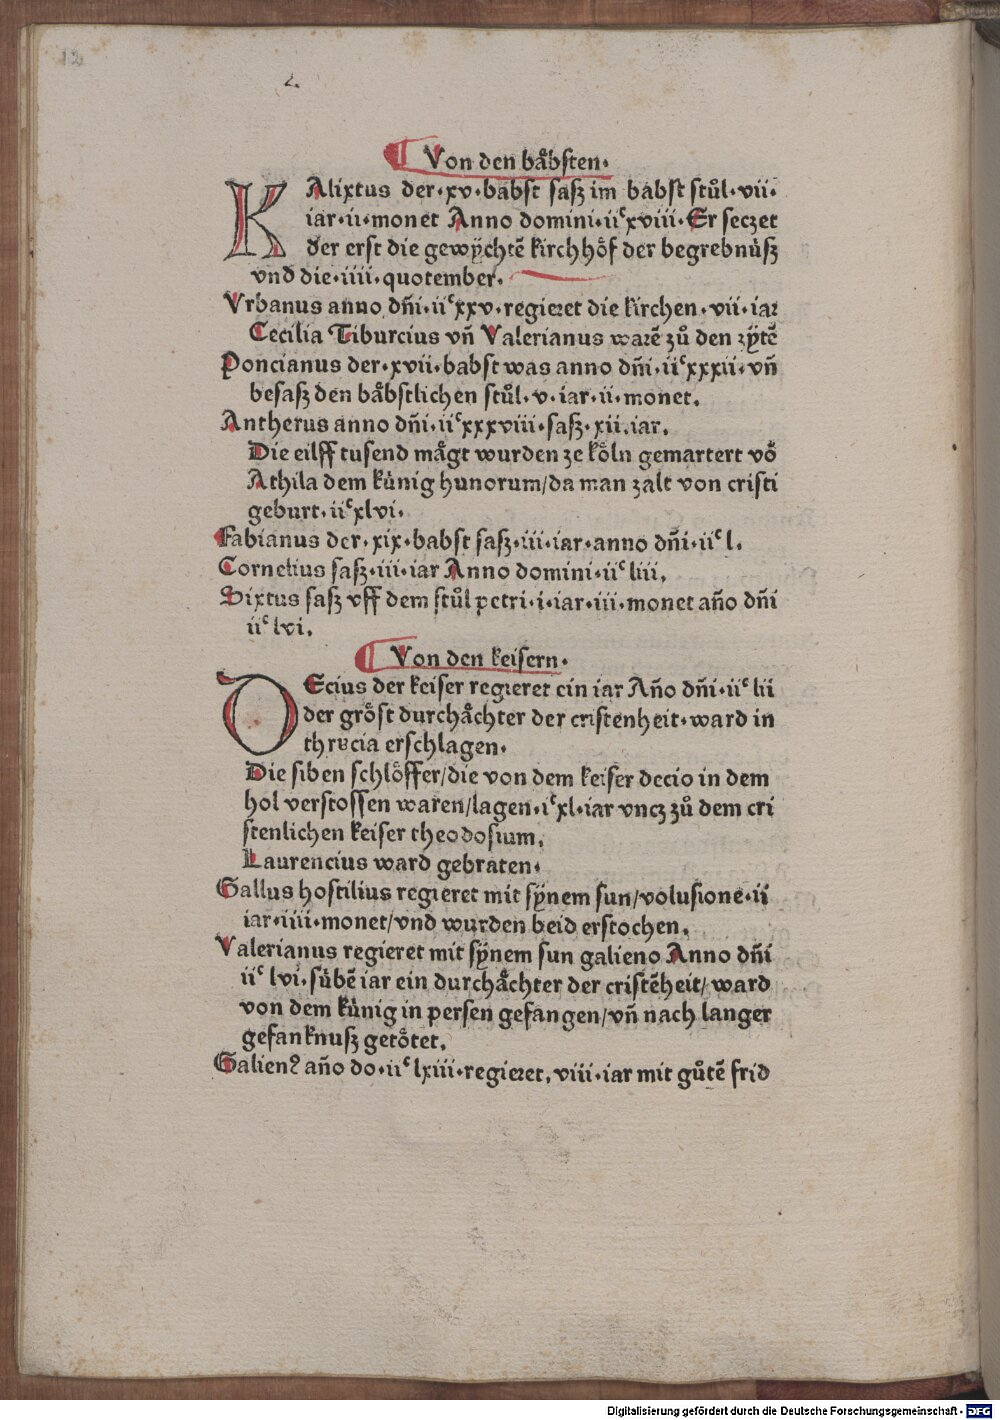 12
2.
Von den baͤbsten·
KAlixtus der·xv·babst sasz im babst stuͦl·vii·
iar·ii·monet Anno domini·iiᶜxviii·Er seczet
der erst die gewÿchtē kirchhoͤf der begrebnuͤsz
vnd die·iiii·quotember·
Vrbanus anno dn̄i·iiᶜxxv·regieret die kirchen·vii·iar
Cecilia Tiburcius vn̄ Valerianus warē zuͦ den zÿtē
Poncianus der·xvii·babst was anno dn̄i·iiᶜxxxii·vn̄
besasz den baͤbstlichen stuͦl·v·iar·ii·monet.
Antherus anno dn̄i·iiᶜxxxviii·sasz·xii.iar.
Die eilff tusend maͤgt wurden ze koͤln gemartert vō
Athila dem kuͤnig hunorum/da man zalt von cristi
geburt·iiᶜxlvi·
Fabianus der·xix·babst sasz·iii·iar·anno dn̄i·iiᶜl.
Cornelius sasz·iii·iar Anno domini·iiᶜliii.
Sixtus sasz vff dem stuͦl petri·i·iar·iii·monet an̄o dn̄i
iiᶜlvi.
Von den keisern·
DEcius der keiser regieret ein iar An̄o dn̄i·iiᶜlii
der groͤst durchaͤchter der cristenheit·ward in
thracia erschlagen·
Die siben schloͤffer/die von dem keiser decio in dem
hol verstossen waren/lagen·iᶜxl·iar vncz zuͦ dem cri
stenlichen keiser theodosium.
Laurencius ward gebraten·
Gallus hostilius regieret mit sÿnem sun/volusione·ii
iar·iiii·monet/vnd wurden beid erstochen.
Valerianus regieret mit sÿnem sun galieno Anno dn̄i
iiᶜlvi·suͤbē iar ein durchaͤchter der cristēheit/ward
von dem kuͤnig in persen gefangen/vn̄ nach langer
gefanknusz getoͤtet.
Galienꝰ an̄o do·iiᶜlxiii·regieret.viii·iar mit guͦtē frid
Digitalisierung gefördert durch die Deutsche Forschungsgemeinschaft - DFG